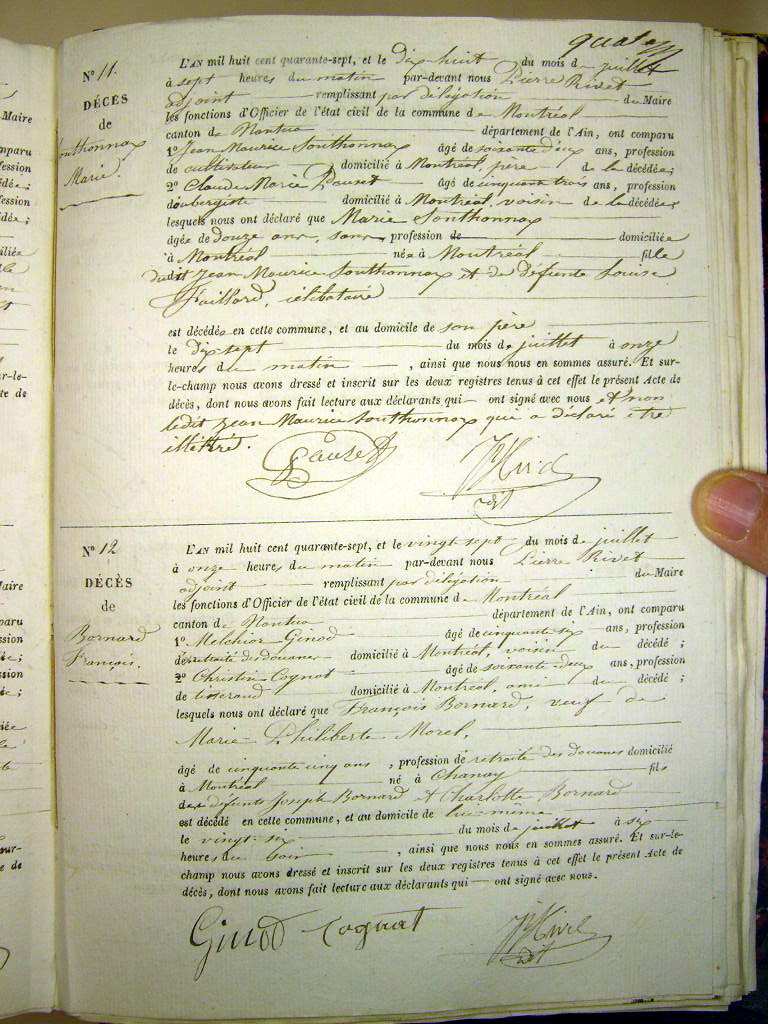 N° 11.
DÉCÈS
de
Southonnax
Marie.
L'AN mil huit cent quarante-sept, et le dix huit du mois de juillet
à sept heures du matin par-devant nous Pierre Rivet
adjoint remplissant par délégation du Maire
les fonctions d'Officier de l'état civil de la commune de Montréal
canton de Nantua département de l'Ain, ont comparu
1° Jean Maurice Southonnax âgé de soixante deux ans, profession
de cultivateur, domicilié à Montréal, père de la décédée;
2° Claude Marie âgé de cinquante trois ans, profession
d'aubergiste domicilié à Montréal, voisin de la décédée;
lesquels nous ont déclaré que Marie Southonnax
âgée de douze ans, sans profession de domiciliée
à Montréal née à Montréal fille
dudit Jean Maurice Southonnax et de défunte Louise
célibataire
est décédée en cette commune, et au domicile de son père
le dix sept du mois de juillet à onze
heures du matin, ainsi que nous nous en sommes assuré. Et sur-
le-champ nous avons dressé et inscrit sur les deux registres tenus à cet effet le présent Acte de
décès, dont nous avons fait lecture aux déclarants qui — ont signé avec nous et non
ledit Jean Maurice Southonnax qui a déclaré être
illettré.
N° 12
DÉCÈS
de
Bornard
François.
L'AN mil huit cent quarante-sept, et le vingt sept du mois de juillet
à onze heures du matin par-devant nous Pierre Rivet
adjoint remplissant par délégation du Maire
les fonctions d'Officier de l'état civil de la commune de Montréal
canton de Nantua département de l'Ain, ont comparu
1° Melchior Ginod âgé de cinquante six ans, profession
de retraité des douanes domicilié à Montréal, voisin du décédé;
2° Christin Cognat âgé de soixante deux ans, profession
de tisserand domicilié à Montréal, ami du décédé;
lesquels nous ont déclaré que François Bornard, veuf de
Marie Philiberte Morel,
âgé de cinquante cinq ans, profession de retraité des douanes domicilié
à Montréal né à Chanay fils
des défunts Joseph Bornard et Charlotte Bornard
est décédé en cette commune, et au domicile de lui-même
le vingt six du mois de juillet à six
heures du soir, ainsi que nous nous en sommes assuré. Et sur-le-
champ nous avons dressé et inscrit sur les deux registres tenus à cet effet le présent Acte de
décès, dont nous avons fait lecture aux déclarants qui — ont signé avec nous.
Ginod Cognat PRivet
adt